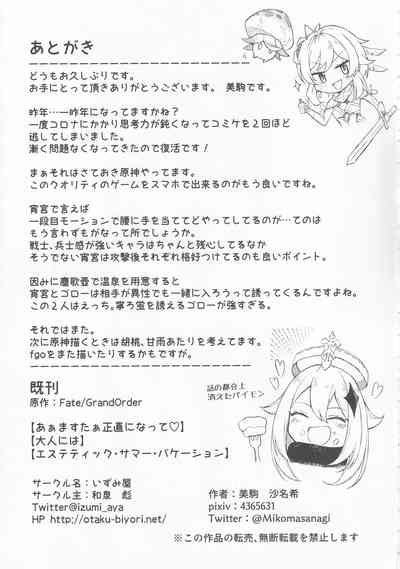 あとがき
どうもお久しぶりです。
お手にとって頂きありがとうございます。 美駒です。
昨年…一昨年になってますかね？
一度コロナにかかり思考力が鈍くなってコミケを２回ほど
逃してしまいました。
漸く問題なくなってきたので復活です！
まぁそれはさておき原神やってます。
このクオリティのゲームをスマホで出来るのがもう良いですね。
宵宮で言えば
一段目モーションで腰に手を当ててどやってしてるのが…てのは
もう言わずもがなって所でしょうか。
戦士、兵士感が強いキャラはちゃんと残心してるなか
そうでない宵宮は攻撃後それぞれ格好つけてるのも良いポイント。
因みに塵歌壺で温泉を用意すると
宵宮とゴローは相手が異性でも一緒に入ろうって誘ってくるんですよね。
この２人はえっち。寧ろ蛍を誘えるゴローが強すぎる。
それではまた。
次に原神描くときは胡桃、甘雨あたりを考えてます。
fgoをまた描いたりするかもですが。
話の都合上
消えたパイモン
既刊
原作：Fate/GrandOrder
【あぁますたぁ正直になって♡】
【大人には】
【エステティック・サマー・バケーション】
サークル名：いずみ屋
サークル主：和泉 彪
Twitter@izumi_aya
HP http;//otaku-biyori.net/
作者：美駒 沙名希
pixiv：4365631
Twitter：@Mikomasanagi
※この作品の転売、無断転載を禁止します